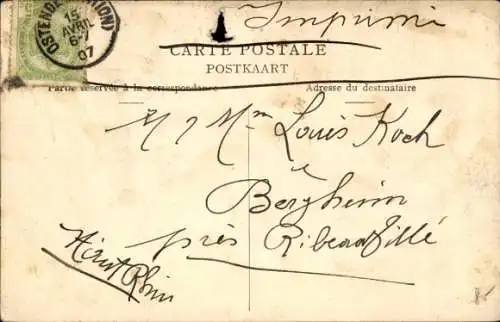 Imprimé
OSTENDE (STATION)
15
AVRIL
6-7
07
CARTE POSTALE
POSTKAART
Partie réservée à la correspondance
Adresse du destinataire
M & Mme Louis Koch
à
Bergheim
près Ribeauvillé
Haut Rhin